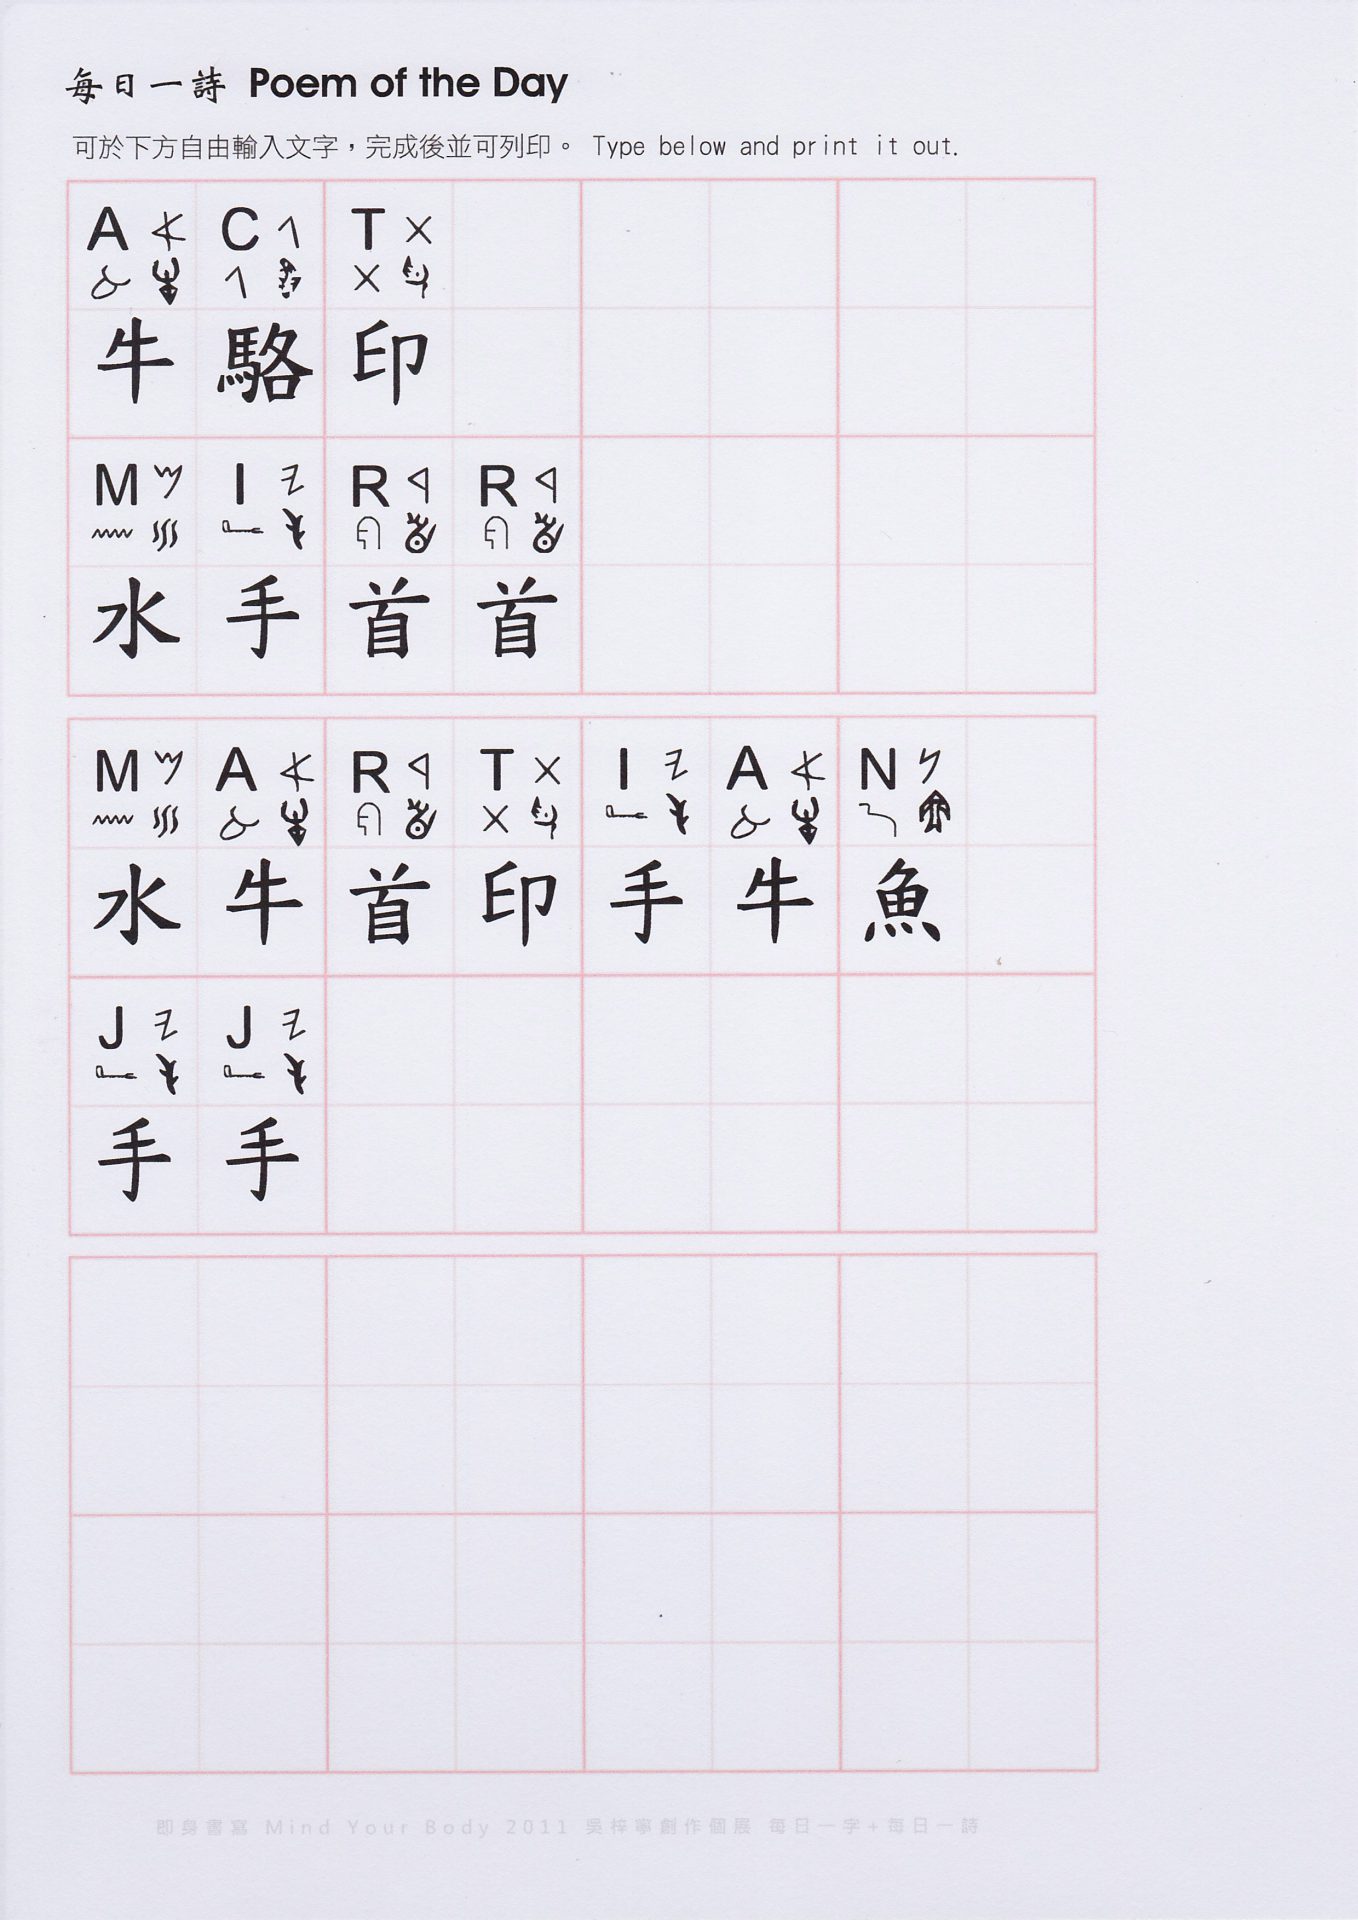 每日一詩 Poem of the Day
可於下方自由輸入文字，完成後並可列印。 Type below and print it out.
A C T
牛 駱 印
M I R R
水 手 首 首
M A R T I A N
水 牛 首 印 手 牛 魚
J J
手 手
即身書寫 Mind Your Body 2011 吳梓寧創作個展 每日一字+每日一詩